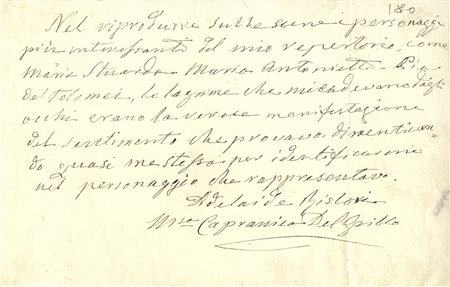 180
Nel riprodurre sulle scene i personaggi
più interessanti del mio repertorio, come
Maria Stuarda Maria Antonietta - Pia
de' Tolomei, le lagrime che mi cadevano dagli
occhi erano la verace manifestazione
del sentimento che provavo, dimentican=
do quasi me stessa per identificarmi
nel personaggio che rappresentavo.
Adelaide Ristori
M.sa Capranica Del Grillo